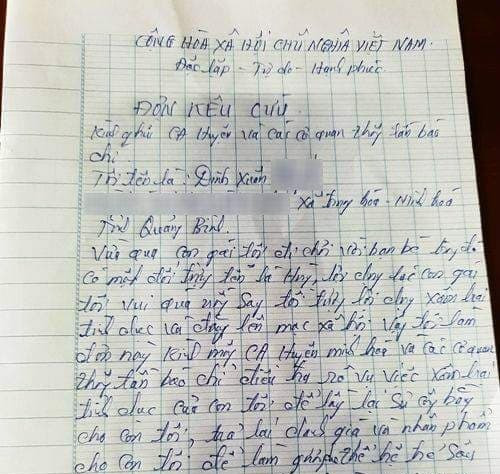 CỘNG HÒA XÃ HỘI CHỦ NGHĨA VIỆT NAM.
Độc lập - Tự do - Hạnh phúc
ĐƠN KÊU CỨU
Kính gửi CA Huyện và các cơ quan thông tấn báo
chí
Tôi tên là: Đinh Xuân
xã trung hóa - Minh hoá
Tỉnh Quảng Bình.
Vừa qua con gái tôi đi chơi với bạn bè
có một đối tượng tên là Huy, lợi dụng lúc con gái
tôi vui quá uống say
tình dục và đăng lên mạc xã hội vậy tôi làm
đơn này kính mong CA Huyện minh hoá và các cơ quan
thông tấn báo chí điều tra rõ vụ việc xâm hại
tình dục của con tôi để lấy lại sự công bằng
cho con tôi, trả lại danh giá và nhân phẩm
cho con tôi để làm gương thế hệ sau